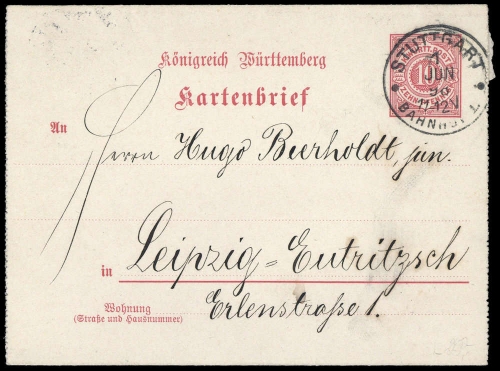 Königreich Württemberg
Kartenbrief
STUTTGART
JUN
11-12V
BAHNHOF
10
An
Herrn Hugo Beerholdt, jun.
Leipzig=Eutritzsch
in
Wohnung
Erlenstraße 1.
(Straße und Hausnummer)